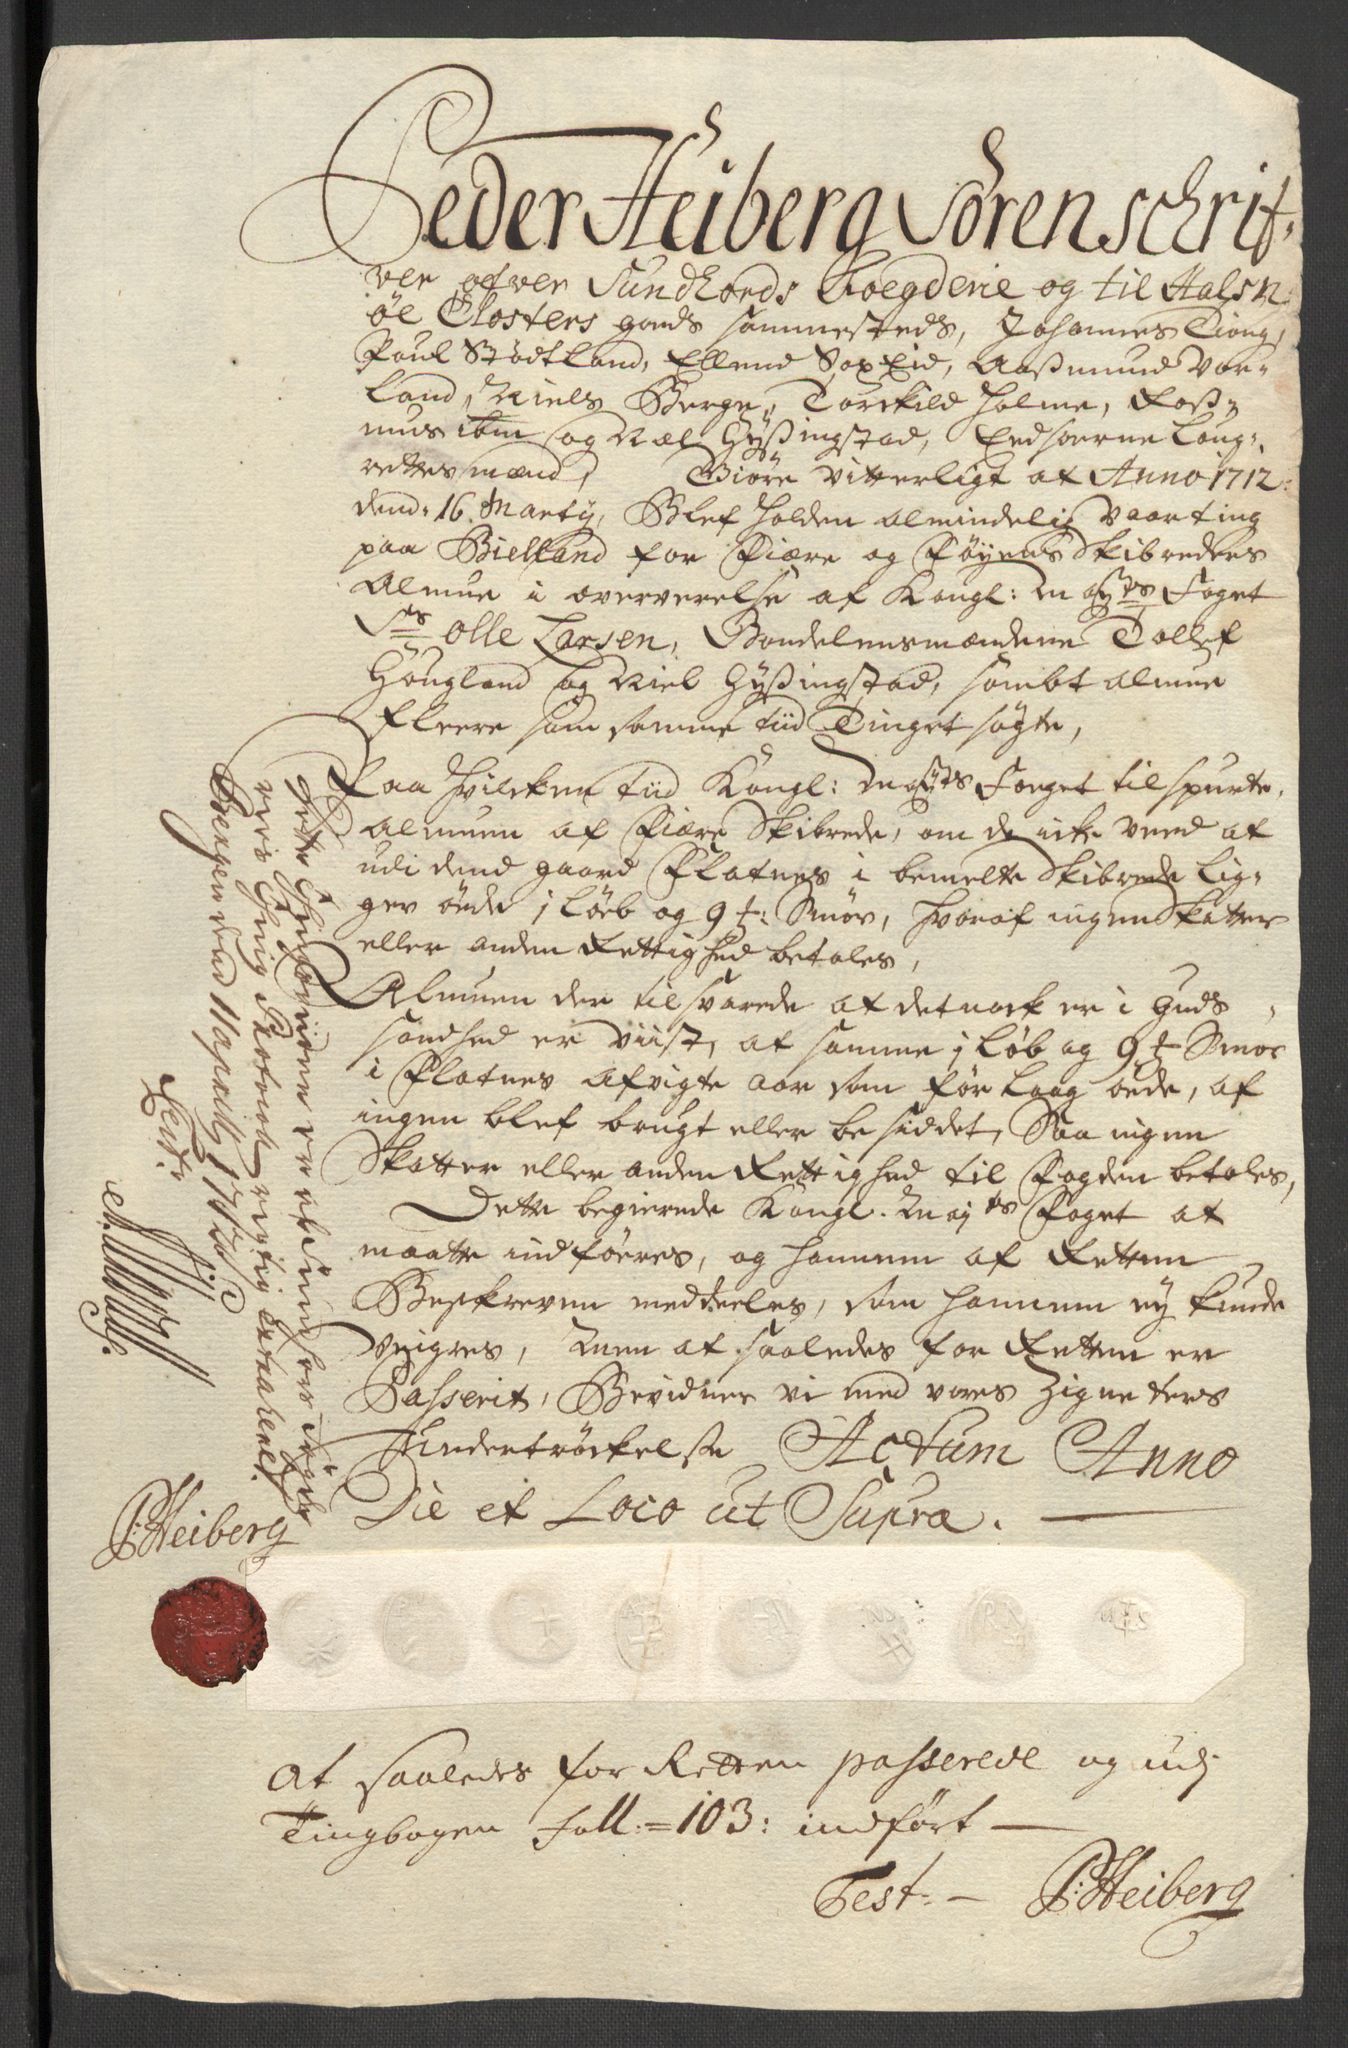 Peder Heiberg Sorenschrif-
ver ofver Sundhords Foegderie og til Halsn-
öe Closters gouds sammesteds, Johannes Tiong,
Poul Stödtland, Ellend Sox Eid, Aasmund Vor-
land, Niels Berge, Torckild Holme, Raß-
mus ibm og Niel Gyßingstad, Eedsoerne Laug-
rettesmænd, Giöre vitterligt at Anno 1712:
dend: 16. Marty, Blef holden almindelig Vaarting
paa Bielland for Fiære og Föyens Skibreders
Almue i oververelse af Kongl: Mayts Foget
Sr Olle Larsen, Bondelensmændene Tollef
Hougland og Niel Gyßingstad, sambt almue
fleere som samme tiid Tinget sögte,
Paa hvilcken tiid Kongl: Mayts Foeget tilspurte
almuen af Fiære Skibrede, om de icke veed at
udi dend gaard Flatnes i bemelte Skibrede lig-
ger öede 1 Löb og 9 t: Smör, hvoraf ingen Skatter
eller anden Rettighed betales,
Almuen der til svarede at det nock er i Guds
sandhed er viist, at samme 1 Löb og 9 t Smör
i Flatnes afvigte aar som för laag öede, af
ingen blef brugt eller besiddet, Saa ingen
Skatter eller anden Rettighed til Fogden betales,
Dette begierede Kongl. Mayts Foget at
maatte indföeres, og hannem af Retten
Beskreven meddeeles, som hannem ey kunde
veigres, Men at saaledes for Retten er
Passerit, Bevidner vi med vores Zigneters
undertröckelse Actum Anno
Die et Loco ut Supra.
At saaledes for Retten passerede og udj
Tingbogen Foll: = 103: indfört
Test. P: Heiberg
Dette Tingsvidne er
ved
rigtig
Bergen dend 11 Aprilly 1713
Teste
P: Heiberg